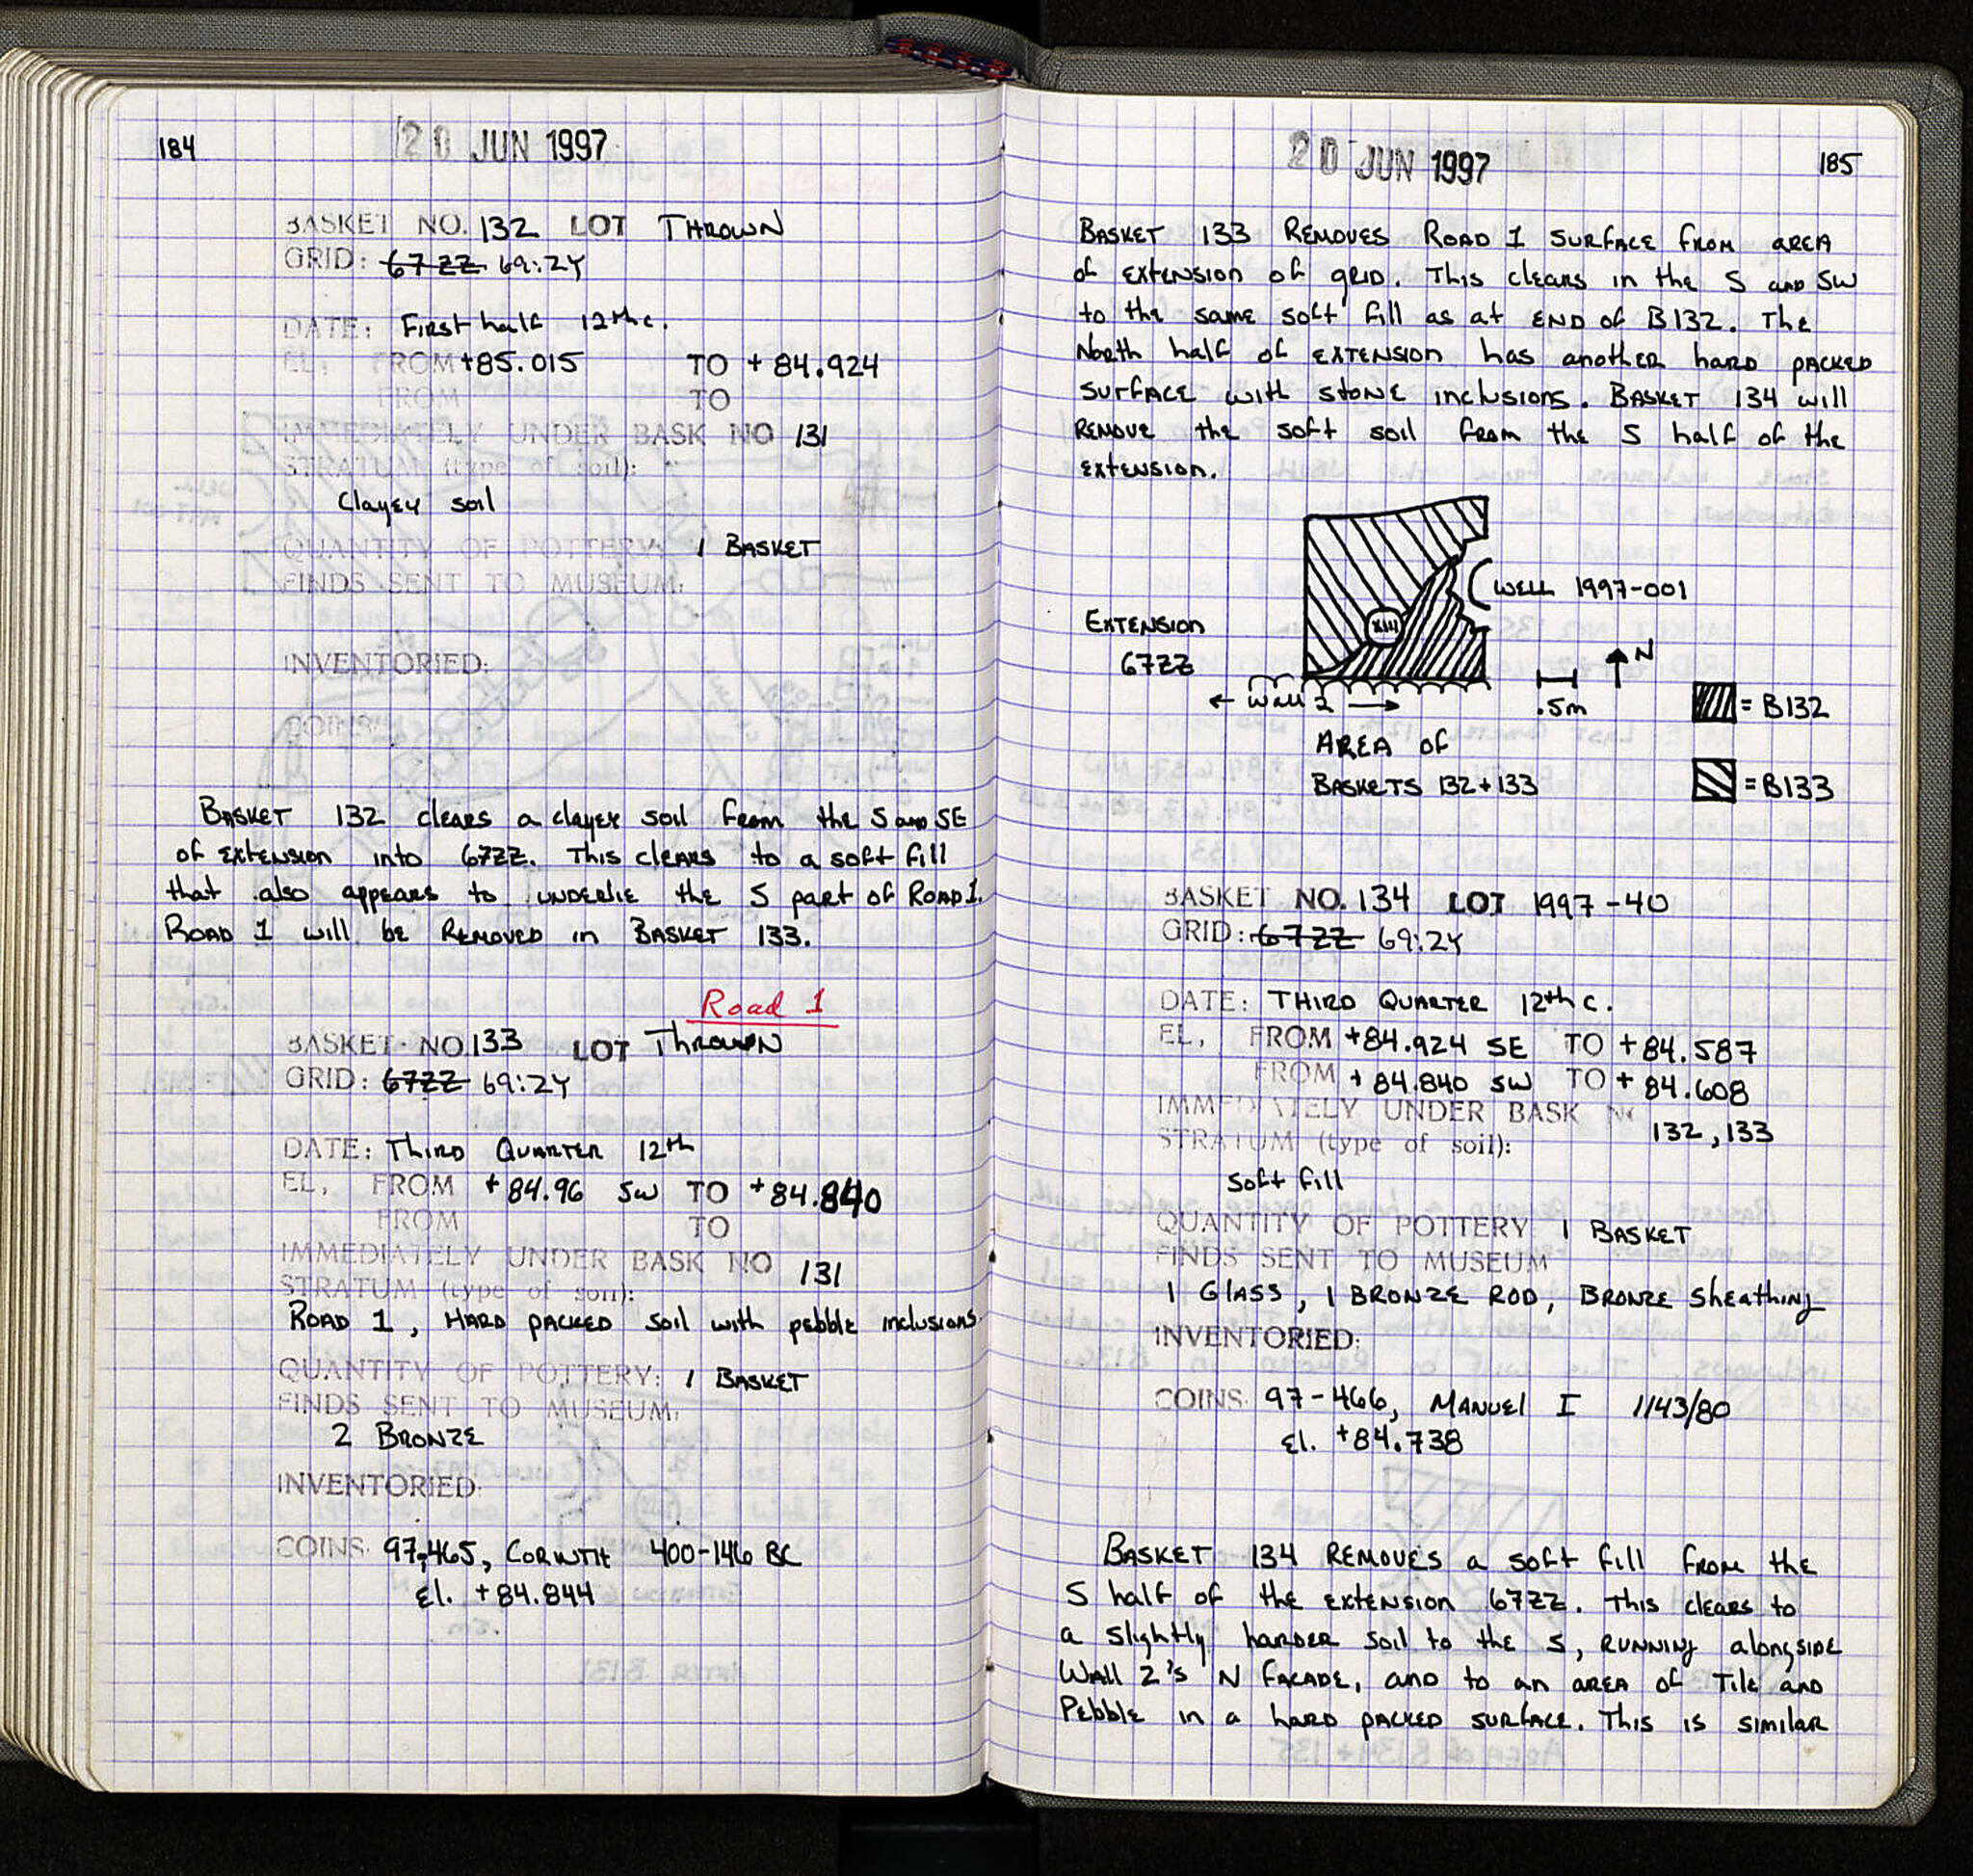 184
20 JUN 1997
BASKET NO. 132 LOT THROWN
GRID: 67ZZ 69:ZY
DATE: First half 12th c.
EL, FROM +85.015 TO +84.924
FROM TO
IMMEDIATELY UNDER BASK NO 131
STRATUM (type of soil):
Clayey soil
QUANTITY OF POTTERY: 1 BASKET
FINDS SENT TO MUSEUM:
INVENTORIED:
COINS:
BASKET 132 clears a clayey soil from the S and SE
of extension into 67ZZ. This clears to a soft fill
that also appears to underlie the S part of Road 1.
Road 1 will be Removed in Basket 133.
Road 1
BASKET NO. 133 LOT Thrown
GRID: 67ZZ 69:ZY
DATE: Third Quarter 12th
EL, FROM +84.96 SW TO +84.840
FROM TO
IMMEDIATELY UNDER BASK NO 131
STRATUM (type of soil):
Road 1, Hard packed soil with pebble inclusions.
QUANTITY OF POTTERY: 1 BASKET
FINDS SENT TO MUSEUM:
2 Bronze
INVENTORIED:
COINS: 97-465, Corinth 400-146 BC
El. +84.844
20 JUN 1997
185
Basket 133 Removes Road 1 surface from area
of extension of grid. This clears in the S and SW
to the same soft fill as at end of B132. The
North half of extension has another hard packed
surface with stone inclusions. Basket 134 will
Remove the soft soil from the S half of the
extension.
Well 1997-001
XIII
Extension
67ZZ
N
← Wall 2 →
.5m
= B132
= B133
Area of
Baskets 132+133
BASKET NO. 134 LOT 1997-40
GRID: 67ZZ 69:ZY
DATE: Third Quarter 12th c.
EL, FROM +84.924 SE TO +84.587
FROM +84.840 SW TO +84.608
IMMEDIATELY UNDER BASK NO 132, 133
STRATUM (type of soil):
soft fill
QUANTITY OF POTTERY: 1 Basket
FINDS SENT TO MUSEUM
1 Glass, 1 Bronze Rod, Bronze sheathing
INVENTORIED:
COINS: 97-466, Manuel I 1143/80
El. +84.738
Basket 134 removes a soft fill from the
S half of the extension 67ZZ. This clears to
a slightly harder soil to the S, running alongside
Wall 2's N facade, and to an area of Tile and
Pebble in a hard packed surface. This is similar